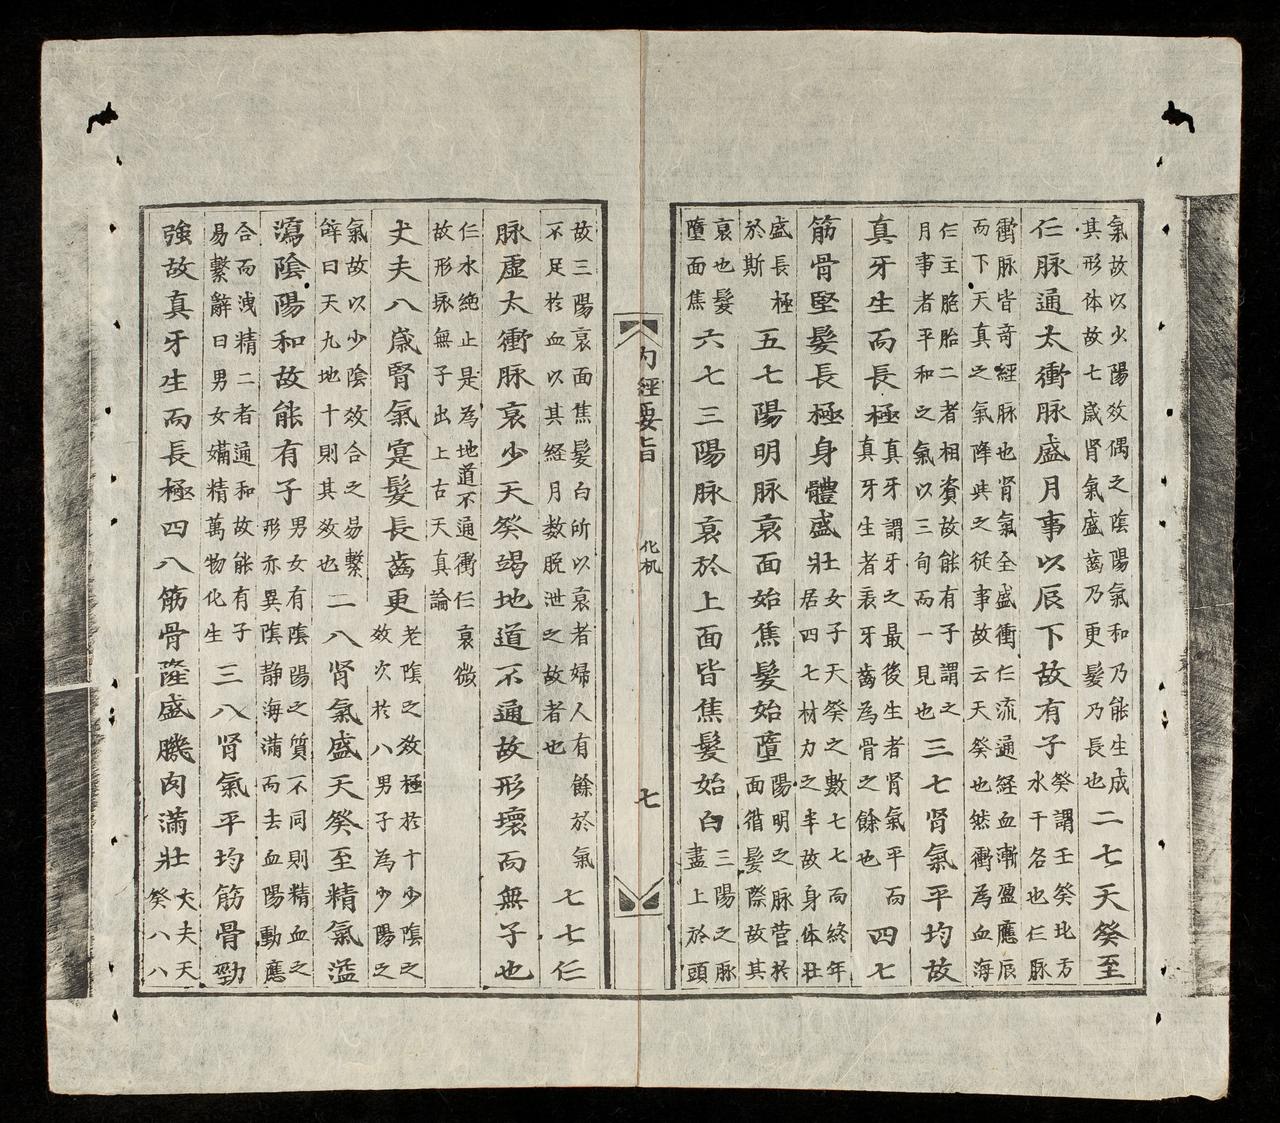 氣故以少陽效偶之陰陽氣和乃能生成
其形体故七歳肾氣盛齒乃更髮乃長也
二七天癸至
仁脉通太衝脉盛月事以辰下故有子
癸謂壬癸北方
水干名也仁脉
衝脉皆奇經脉也肾氣全盛衝仁流通経血漸盈應辰
而下天真之氣降与之從事故云天癸也然衝為血海
仁主胞胎二者相資故能有子謂之
月事者平和之氣以三旬而一見也
三七肾氣平均故
真牙生而長極
真牙謂牙之最後生者肾氣平而
真牙生者表牙齒為骨之餘也
四七
筋骨堅髮長極身體盛壯
女子天癸之數七七而終年
居四七材力之半故身体壮
盛長極
於斯
五七陽明脉衰面始焦髮始墮
陽明之脉营於
面循髮際故其
衰也髮
墮面焦
六七三陽脉衰於上面皆焦髮始白
三陽之脉
盡上於頭
内經要旨
化机
七
故三陽衰面焦髮白所以衰者婦人有餘於氣
不足於血以其経月数脱泄之故者也
七七仁
脉虚太衝脉衰少天癸竭地道不通故形壞而無子也
仁水絶止是為地道不通衝仁衰微
故形壊無子出上古天真論
丈夫八歳腎氣寔髮長齒更
老陰之效極於十少陰之
效次於八男子為少陽之
氣故以少陰效合之易繋
辞曰天九地十則其效也
二八肾氣盛天癸至精氣溢
瀉陰陽和故能有子
男女有陰陽之質不同則精血之
形亦異陰静海滿而去血陽動應
合而洩精二者通和故能有子
易繋辭曰男女媾精萬物化生
三八肾氣平均筋骨勁
強故真牙生而長極四八筋骨隆盛肌肉滿壮
丈夫天
癸八八